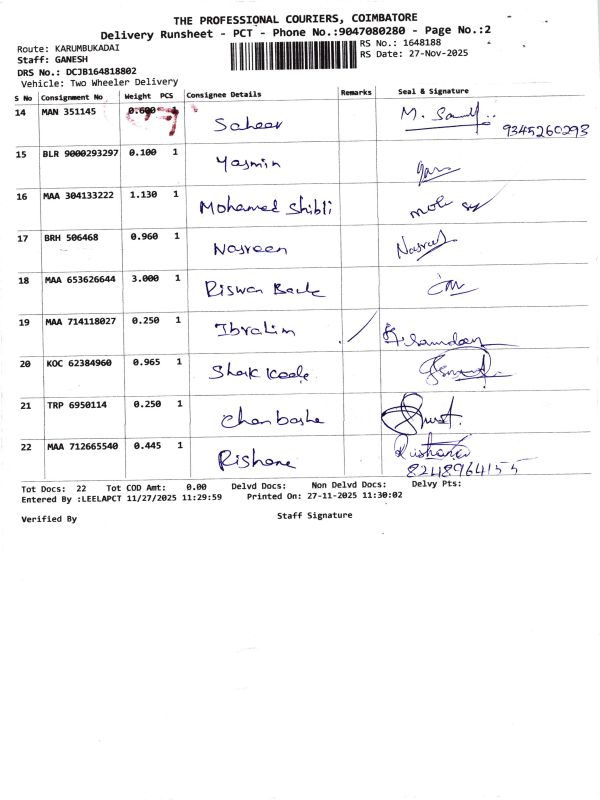 THE PROFESSIONAL COURIERS, COIMBATORE
Delivery Runsheet - PCT - Phone No.:9047080280 - Page No.:2
Route: KARUMBUKADAI RS No.: 1648188
Staff: GANESH RS Date: 27-Nov-2025
DRS No.: DCJB164818802
Vehicle: Two Wheeler Delivery
S No Consignment No Weight PCS Consignee Details Remarks Seal & Signature
14 MAN 351145 0.600 1 Saheer M.
9345260293
15 BLR 9000293297 0.100 1 Yasmin
16 MAA 304133222 1.130 1 Mohamed Shibli
17 BRH 506468 0.960 1 Nasreen Nasreen
18 MAA 653626644 3.000 1 Riswan
19 MAA 714118027 0.250 1 Ibrahim
20 KOC 62384960 0.965 1 Shaik
21 TRP 6950114 0.250 1 Chan basha
22 MAA 712665540 0.445 1 Rishana Rishana
8248964155
Tot Docs: 22 Tot COD Amt: 0.00 Delvd Docs: Non Delvd Docs: Delvy Pts:
Entered By :LEELAPCT 11/27/2025 11:29:59 Printed On: 27-11-2025 11:30:02
Verified By Staff Signature